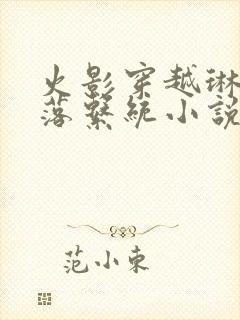 火影穿越琳
落繫統小說
范小東